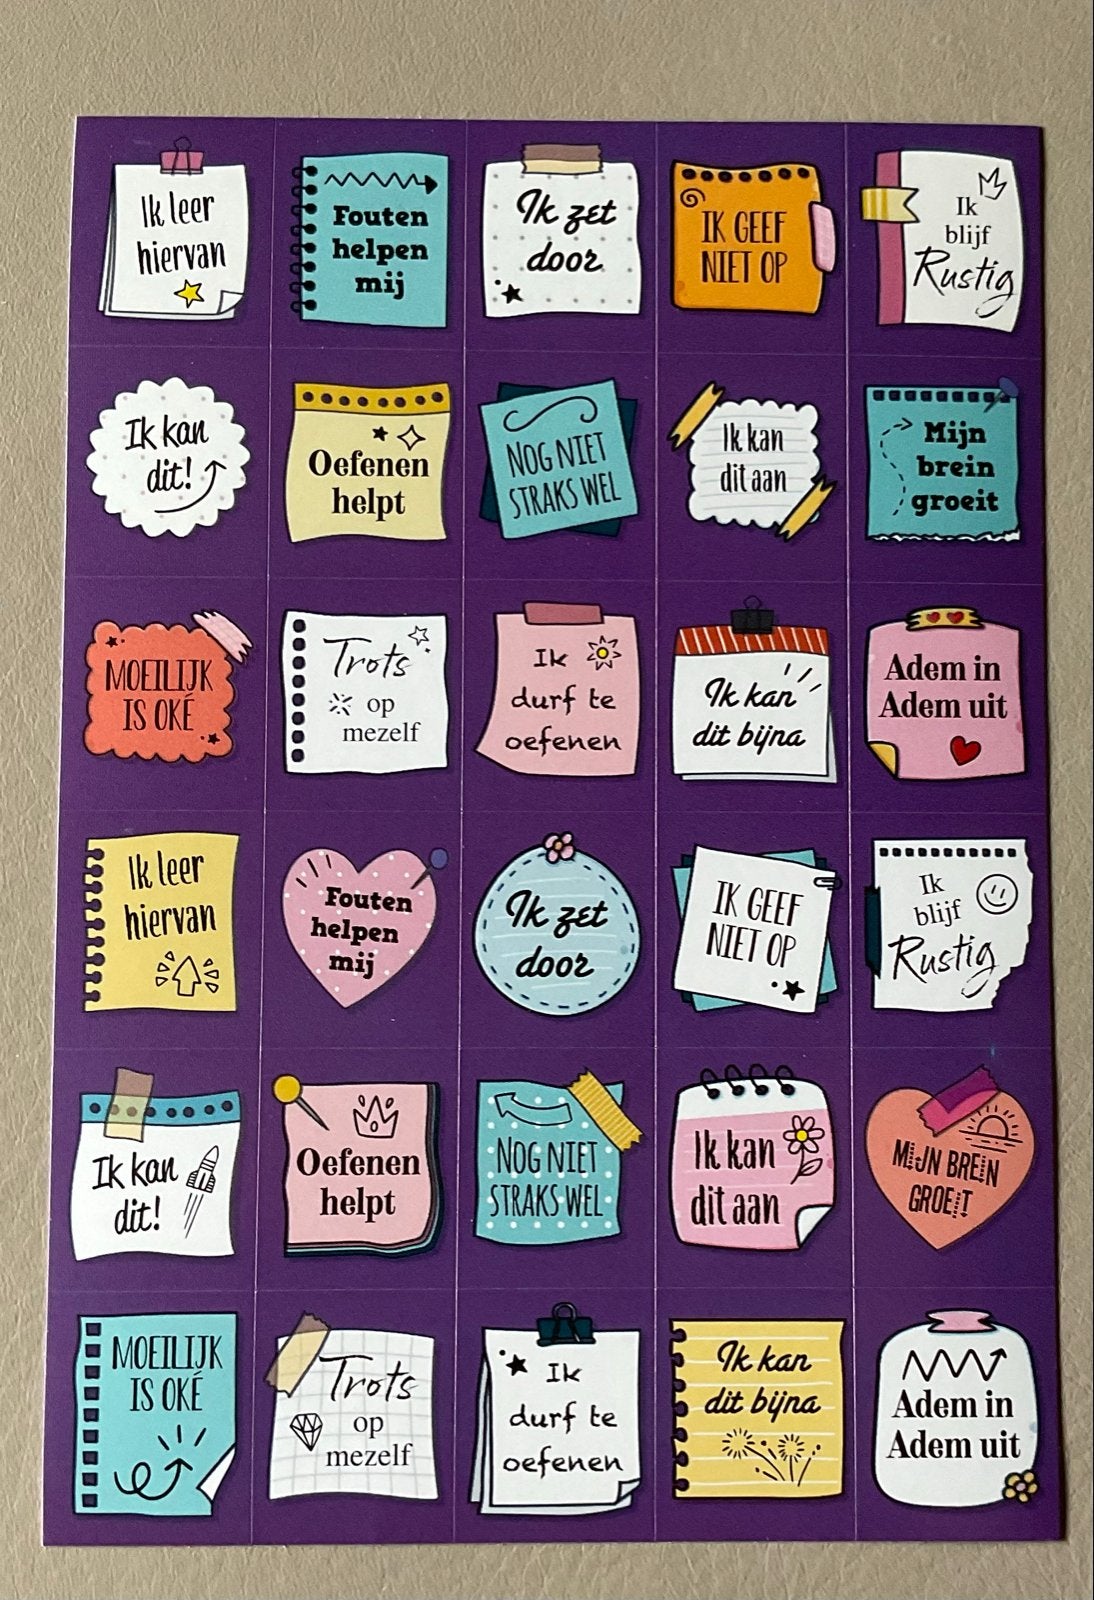 Ik leer
hiervan
Fouten
helpen
mij
Ik zet
door
IK GEEF
NIET OP
Ik
blijf
Rustig
Ik kan
dit!
Oefenen
helpt
NOG NIET
STRAKS WEL
Ik kan
dit aan
Mijn
brein
groeit
MOEILIJK
IS OKÉ
Trots
op
mezelf
Ik
durf te
oefenen
Ik kan
dit bijna
Adem in
Adem uit
Ik leer
hiervan
Fouten
helpen
mij
Ik zet
door
IK GEEF
NIET OP
Ik
blijf
Rustig
Ik kan
dit!
Oefenen
helpt
NOG NIET
STRAKS WEL
Ik kan
dit aan
MIJN BREIN
GROEIT
MOEILIJK
IS OKÉ
Trots
op
mezelf
Ik
durf te
oefenen
Ik kan
dit bijna
Adem in
Adem uit